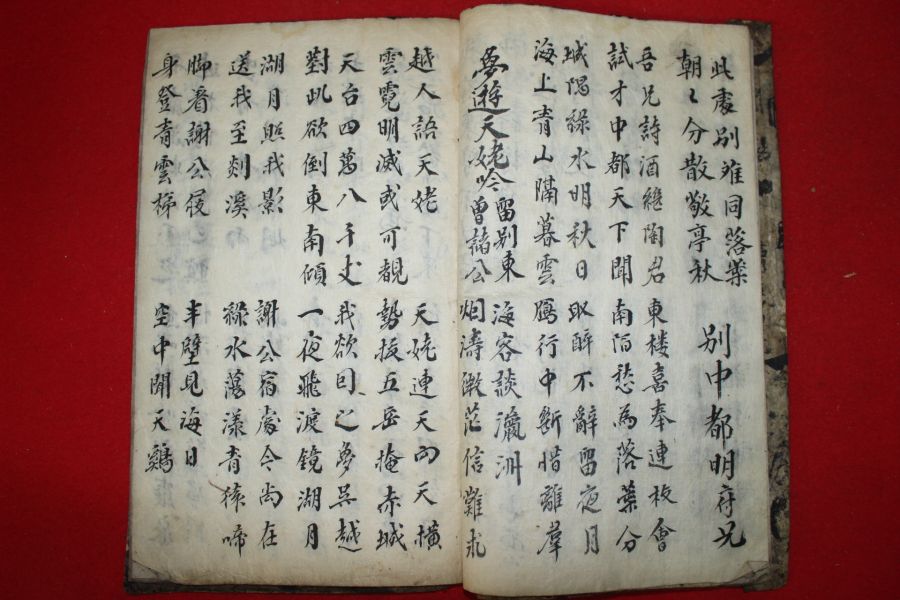 此處別难同落葉
朝〻分散敬亭秋
別中都明府兄
吾兄詩酒繼陶君 東楼喜奉連枝會
試才中都天下聞 南陌愁為落葉分
城隅綠水明秋日 取醉不辭留夜月
海上青山隔暮雲 鴈行中斷惜離羣
夢遊天姥吟 留別東曾諸公
海客談瀛洲
烟濤微茫信難求
越人語天姥 天姥連天向天橫
雲霓明滅或可覩 勢拔五岳掩赤城
天台四萬八千丈 我欲因之夢吳越
對此欲倒東南傾 一夜飛渡鏡湖月
湖月照我影 謝公宿處今尚在
送我至剡溪 綠水蕩漾青猿啼
脚着謝公屐 半壁見海日
身登青雲梯 空中聞天鷄